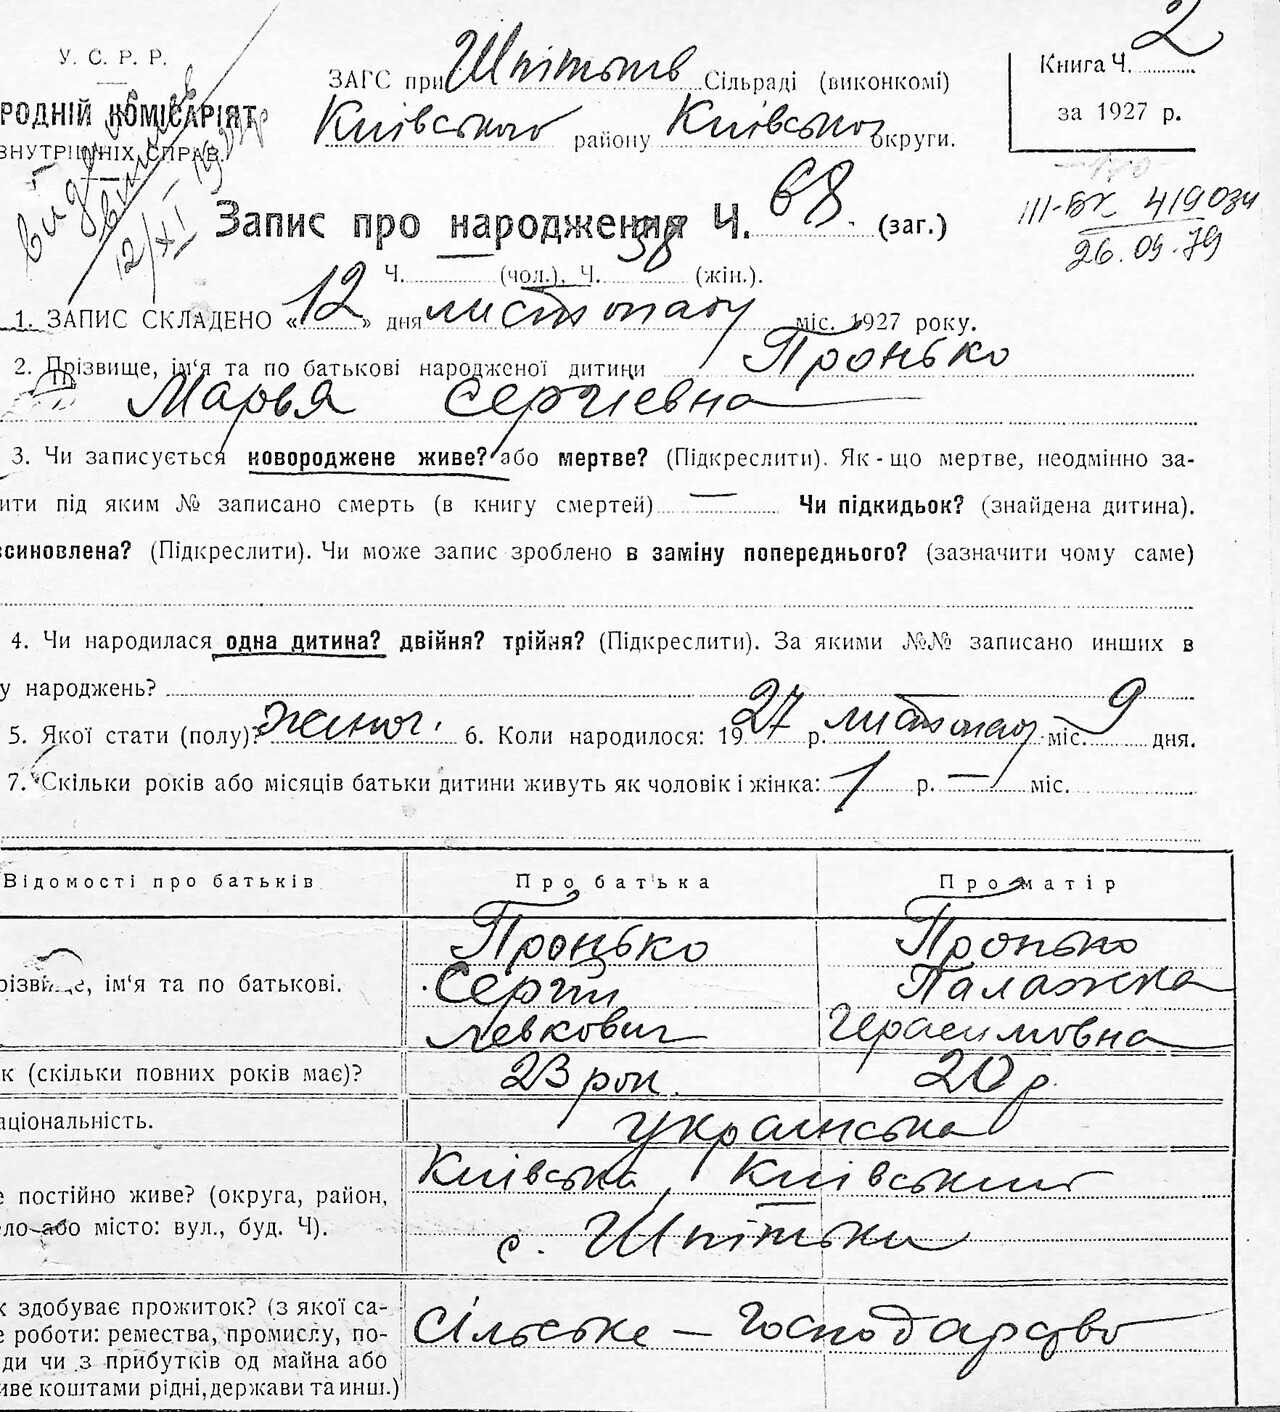 2
У. С. Р. Р.
ЗАГС при Шпітьків Сільраді (виконкомі)
Книга Ч.
РОДНІЙ КОМІСАРІЯТ
Київського району Київської округи.
за 1927 р.
ВНУТРІШНІХ СПРАВ.
видано
виписка
12/XI
Запис про народження Ч. 68. (заг.)
III-БК 419034
26.09.79
Ч. (чол.), Ч. 38 (жін.).
1. ЗАПИС СКЛАДЕНО «12» дня листопаду міс. 1927 року.
2. Прізвище, ім'я та по батькові народженої дитини Пронько
Марья Сергіевна
3. Чи записується новороджене живе? або мертве? (Підкреслити). Як-що мертве, неодмінно за-
ити під яким № записано смерть (в книгу смертей) — Чи підкидьок? (знайдена дитина).
синовлена? (Підкреслити). Чи може запис зроблено в заміну попереднього? (зазначити чому саме)
4. Чи народилася одна дитина? двійня? трійня? (Підкреслити). За якими №№ записано инших в
у народжень?
5. Якої стати (полу)? жіноч. 6. Коли народилося: 1927 р. листопад міс. 9 дня.
7. Скільки років або місяців батьки дитини живуть як чоловік і жінка: 1 р. — міс.
Відомості про батьків
Про батька
Про матір
Пронько
Пронько
різвище, ім'я та по батькові.
Сергій
Палажка
Левкович
Герасимовна
к (скільки повних років має)?
23 рок.
20 р.
аціональність.
українська
Київська, Київський
е постійно живе? (округа, район,
ло або місто: вул., буд. Ч).
с. Шпітьки
к здобуває прожиток? (з якої са-
Сільське – господарство
е роботи: ремества, промислу, по-
ди чи з прибутків од майна або
иве коштами рідні, держави та инш.)